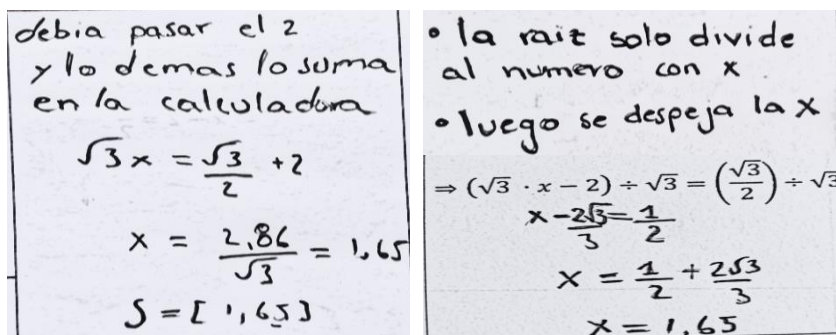 debia pasar el 2
y lo demas lo suma
en la calculadora
√3x = √3/2 + 2
x = 2,86/√3 = 1,65
S = [ 1,65]
• la raiz solo divide
al numero con x
• luego se despeja la x
⇒ (√3 · x − 2) ÷ √3 = (√3/2) ÷ √3
x − 2√3/3 = 1/2
x = 1/2 + 2√3/3
x = 1.65